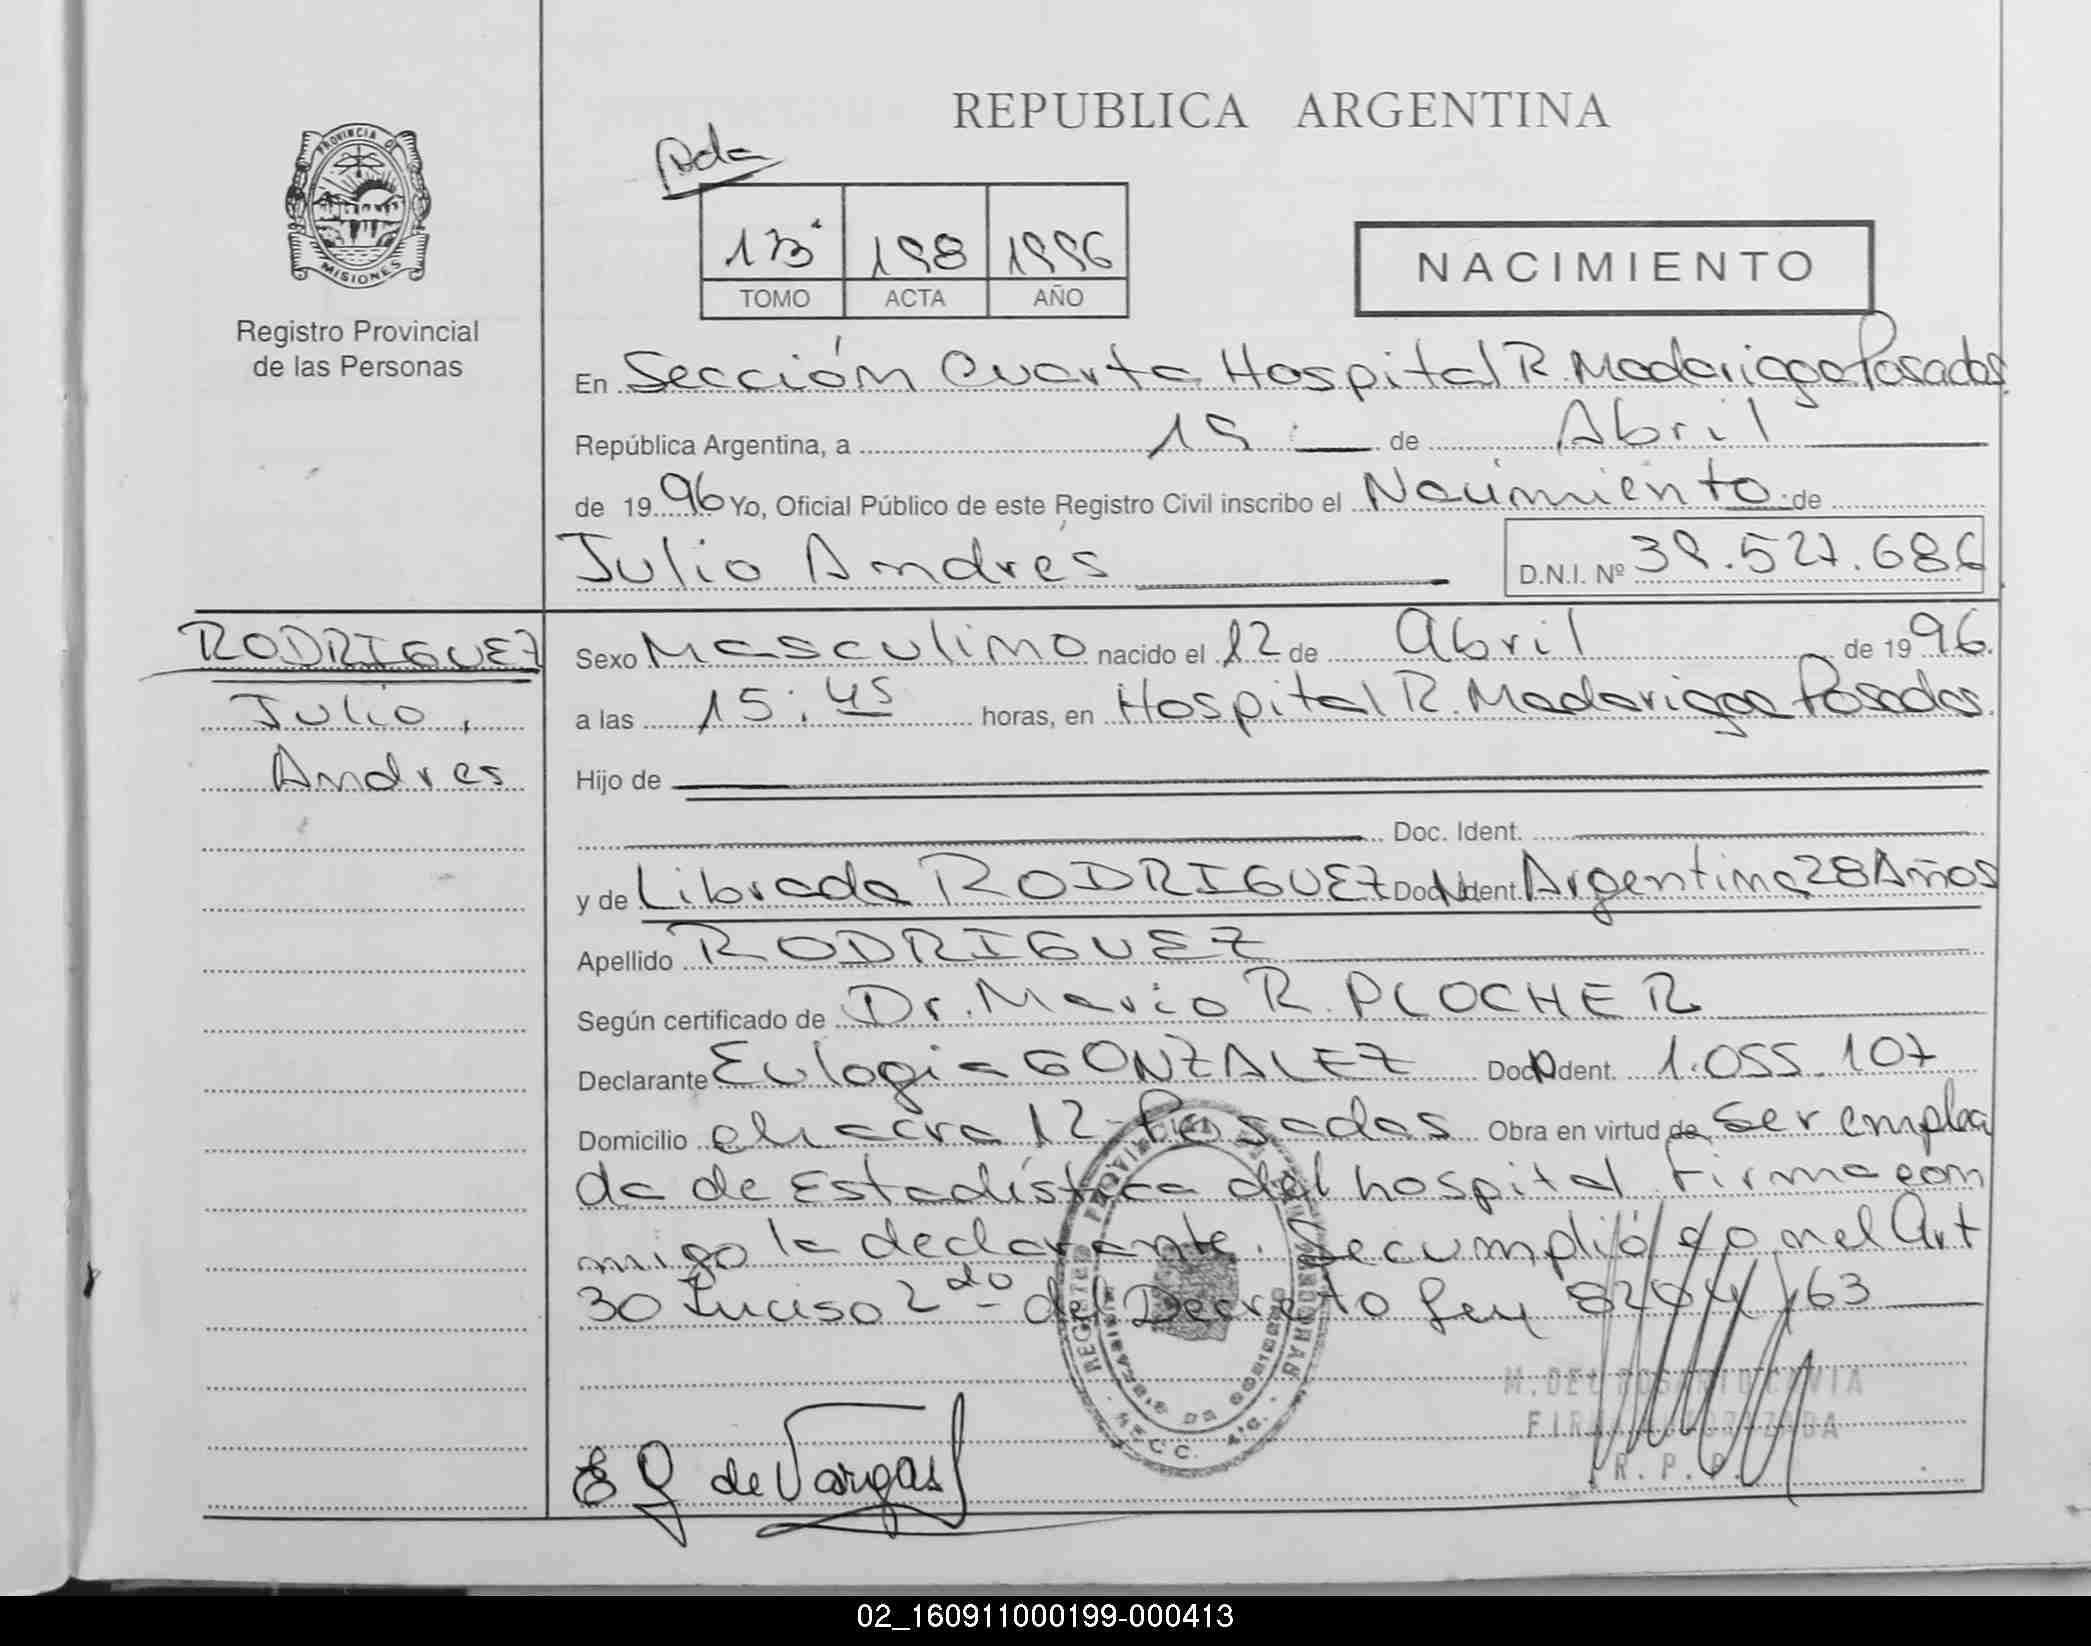 REPUBLICA ARGENTINA
PROVINCIA DE
MISIONES
Registro Provincial
de las Personas
13 198 1996
TOMO ACTA AÑO
NACIMIENTO
En Sección Cuarta Hospital R. Madariaga Posadas
República Argentina, a 19 de Abril
de 1996 Yo, Oficial Público de este Registro Civil inscribo el Nacimiento de
Julio Andrés
D.N.I. Nº 39.527.686
RODRIGUEZ
Julio,
Andres
Sexo Masculino nacido el 12 de Abril de 1996.
a las 15:45 horas, en Hospital R. Madariaga Posadas.
Hijo de
Doc. Ident.
y de Librada RODRIGUEZ Doc. Ident. Argentina 28 Años
Apellido RODRIGUEZ
Según certificado de Dr. Mario R. PLOCHER
Declarante Eulogia GONZALEZ Doc. Ident. 1.055.107
Domicilio chacra 12-Posadas Obra en virtud de Ser emplea
da de Estadística del hospital Firma con
migo la declarante. Se cumplió con el Art
30 Inciso 2do- del Decreto Ley 8204/63
M. DEL ROSARIO
FIRMA AUTORIZADA
R. P. P.
E G de Vargas
02_160911000199-000413